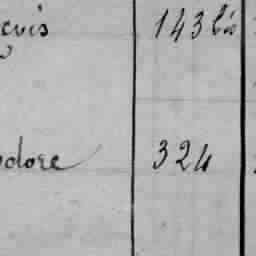 evis 143 bis
odore 324